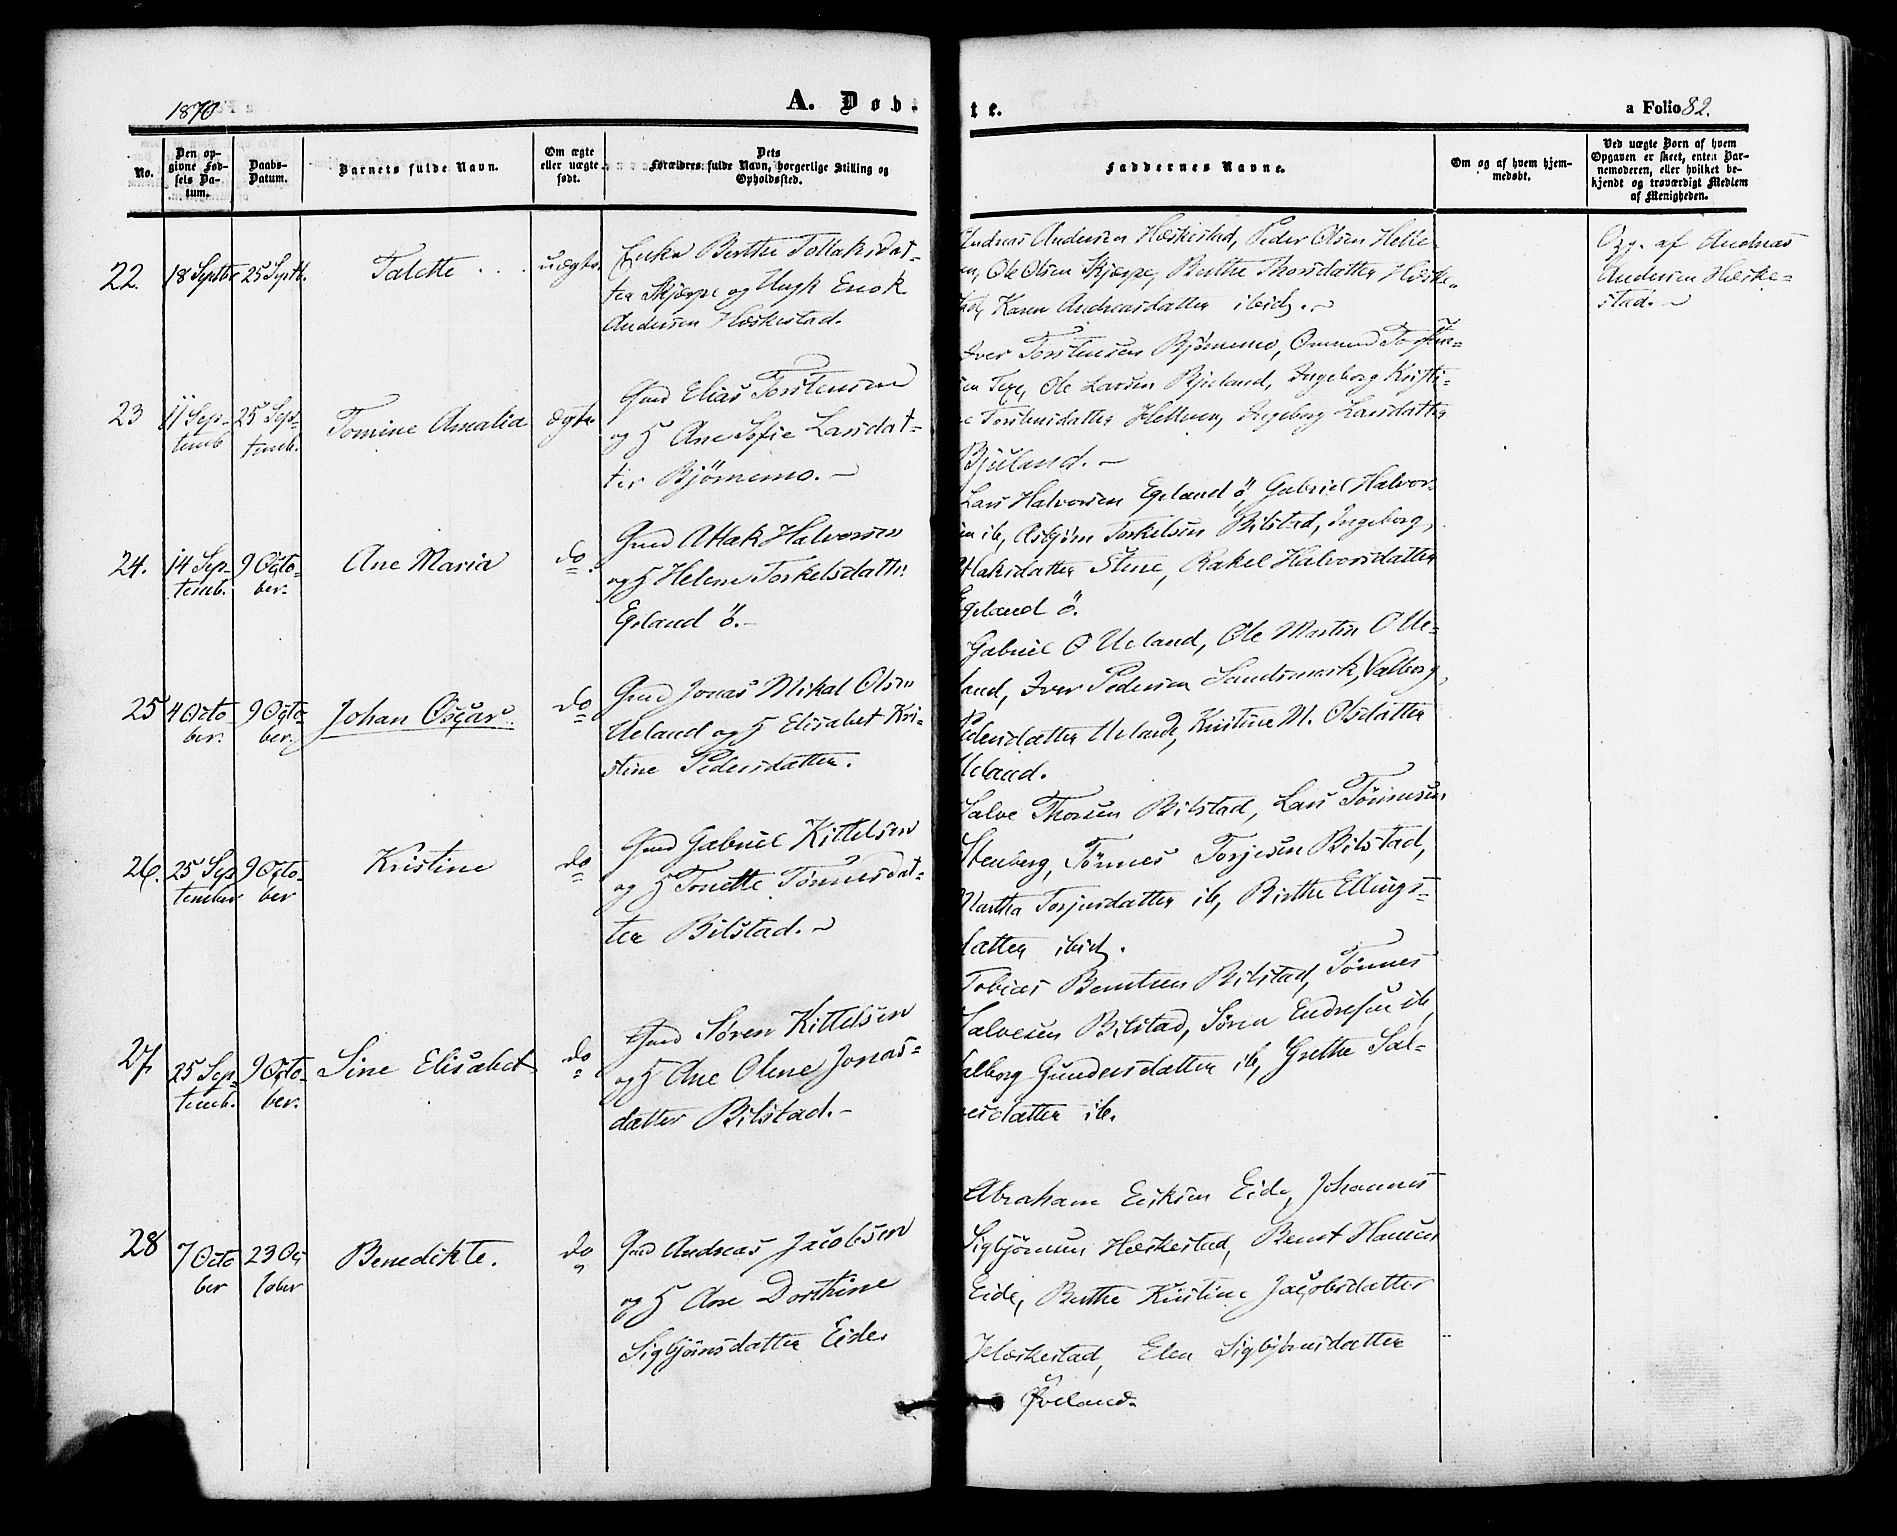 1870
A. Døb-
te.
a Folio 82.
No.
Den op-
givne Fød-
sels Da-
tum.
Daabs-
Datum.
Barnets fulde Navn.
Om ægte
eller uægte
født.
Dets
Forældres fulde Navn, borgerlige Stilling og
Opholdssted.
Faddernes Navne.
Om og af hvem hjem-
medøbt.
Ved uægte Børn af hvem
Opgaven er skeet, enten Bar-
nemoderen, eller hvilket be-
kjendt og troværdigt Medlem
af Menigheden.
22.
18 Septbr
25 Septb.
Talette
uægte
Enke Berthe Tollaksdat-
ter Skjærpe og Ungk Enok
Andersen Hæskestad.
Andreas Andersen Hæskestad, Peder Olsen Helle-
en, Ole Olsen Skjærpe, Berthe Thorsdatter Hæske-
stad, Karen Andreasdatter ibid.
Opg. af Andreas
Andersen Hæske-
stad.
23
11 Sep-
temb
25 Sep-
temb.
Tomine Amalia
ægte
Gmd Elias Torstensen
og H Ane Sofie Larsdat-
ter Bjørnemo.
Iver Torstensen Bjørnemo, Ommund Torsten-
sen Texe, Ole Larsen Bjuland, Ingeborg Kristi-
ne Torstensdatter Hellven, Ingeborg Larsdatter
Bjuland.
24.
14 Sep-
temb.
9 Octo-
ber.
Ane Maria
do
Gmd Atlak Halvorsen
og H Helene Torkelsdatter
Egeland ö.
Lars Halvorsen Egeland ö, Gabriel Halvor-
sen ib, Asbjørn Torkelsen Bilstad, Ingeborg
Atlaksdatter Stene, Rakel Halvorsdatter
Egeland ö.
25
4 Octo
ber.
9 Octo-
ber.
Johan Oscar
do
Gmd Jonas Mikal Olsen
Ueland og H Elisabet Kri-
stine Pedersdatter.
Gabriel O Ueland, Ole Martin O Ue-
land, Iver Pedersen Sandsmark, Valborg
Pedersdatter Ueland, Kirstine M. Olsdatter
Ueland.
26.
25 Sep
tember
9 Octo-
ber
Kristine
do
Gmd Gabriel Kittelsen
og H Tonette Tønnesdat-
ter Bilstad.
Salve Thorsen Bilstad, Lars Tønnesen
Stenberg, Tönnes Torjesen Bilstad,
Martha Torjusdatter ib, Birthe Ellings-
datter ibid.
27.
25 Sep-
temb.
9 Octo-
ber.
Sine Elisabet
do
Gmd Søren Kittelsen
og H Ane Olene Jonas-
datter Bilstad.
Tobias Berntsen Bilstad, Tønnes
Salvesen Bilstad, Søren Endresen ib,
Valborg Gundersdatter ib, Grethe Sal-
vesdatter ib.
28
7 Octo
ber
23 Oc
tober
Benedikte.
do
Gmd Andreas Jacobsen
og H Ane Dorthine
Sigbjørnsdatter Eide
Abraham Eriksen Eide, Johannes
Sigbjörnsen Hæskestad, Bernt Hansen
Eide, Berthe Kirstine Jacobsdatter
Hæskestad, Elen Sigbjørnsdatter
Øveland.